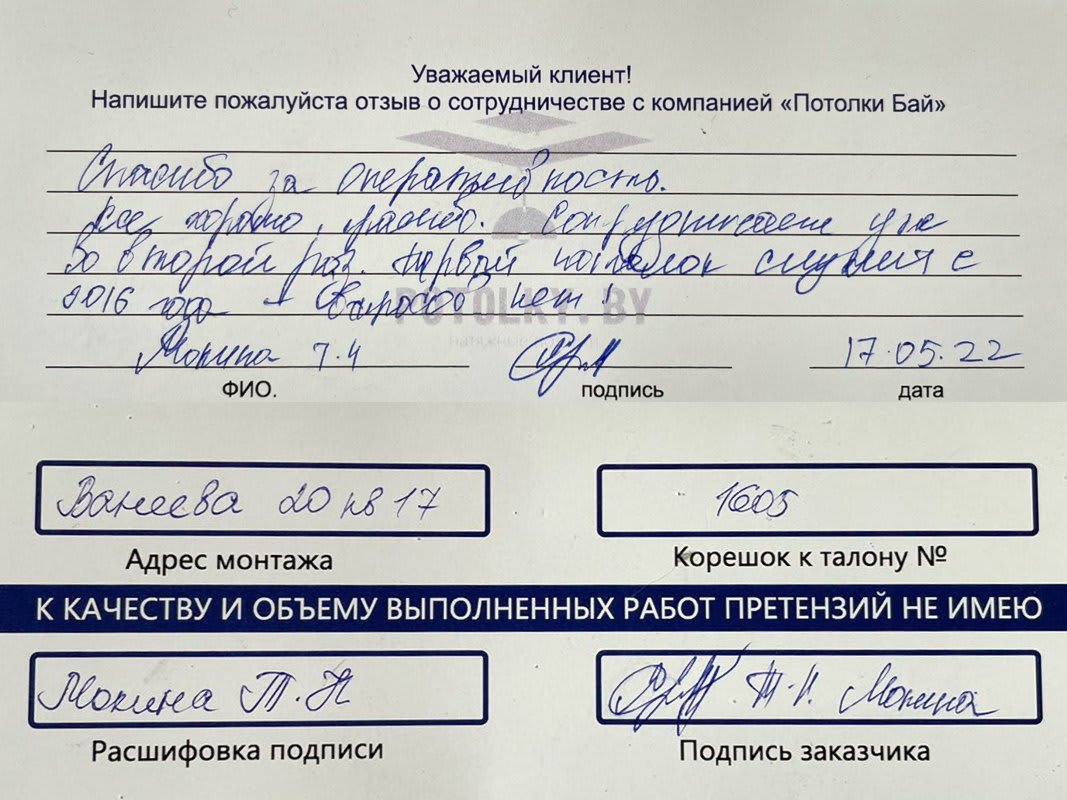 Уважаемый клиент!
Напишите пожалуйста отзыв о сотрудничестве с компанией «Потолки Бай»
Спасибо за оперативность.
Все хорошо, спасибо. Сотрудничаем уже
во второй раз. Первый потолок служит с
2016 года – вопросов нет!
POTOLKY.BY
натяжные
Мокина Т.Н
17.05.22
ФИО. подпись дата
Ванеева 20 кв 17 1605
Адрес монтажа Корешок к талону №
К КАЧЕСТВУ И ОБЪЕМУ ВЫПОЛНЕННЫХ РАБОТ ПРЕТЕНЗИЙ НЕ ИМЕЮ
Мокина Т.Н Т.Н. Мокина
Расшифовка подписи Подпись заказчика